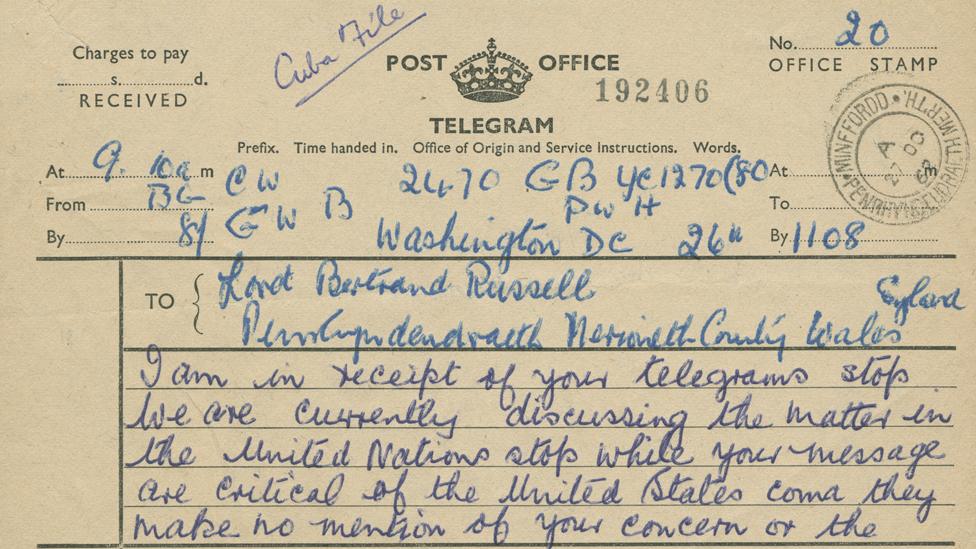 Cuba File
Charges to pay
s. d.
RECEIVED
POST OFFICE
No. 20
OFFICE STAMP
192406
TELEGRAM
Prefix. Time handed in. Office of Origin and Service Instructions. Words.
At 9.10a m
From BG
By 81
CW 2470 GB YC1270(80
GW B PWH
Washington DC 26"
At m
To
By 1108
MINFFORDD
A
27 OC
62
TO Lord Bertrand Russell England
Merioneth County Wales
I am in receipt of your telegrams stop
We are currently discussing the matter in
the United Nations stop while your message
are critical of the United States coma they
make no mention of your concern or the